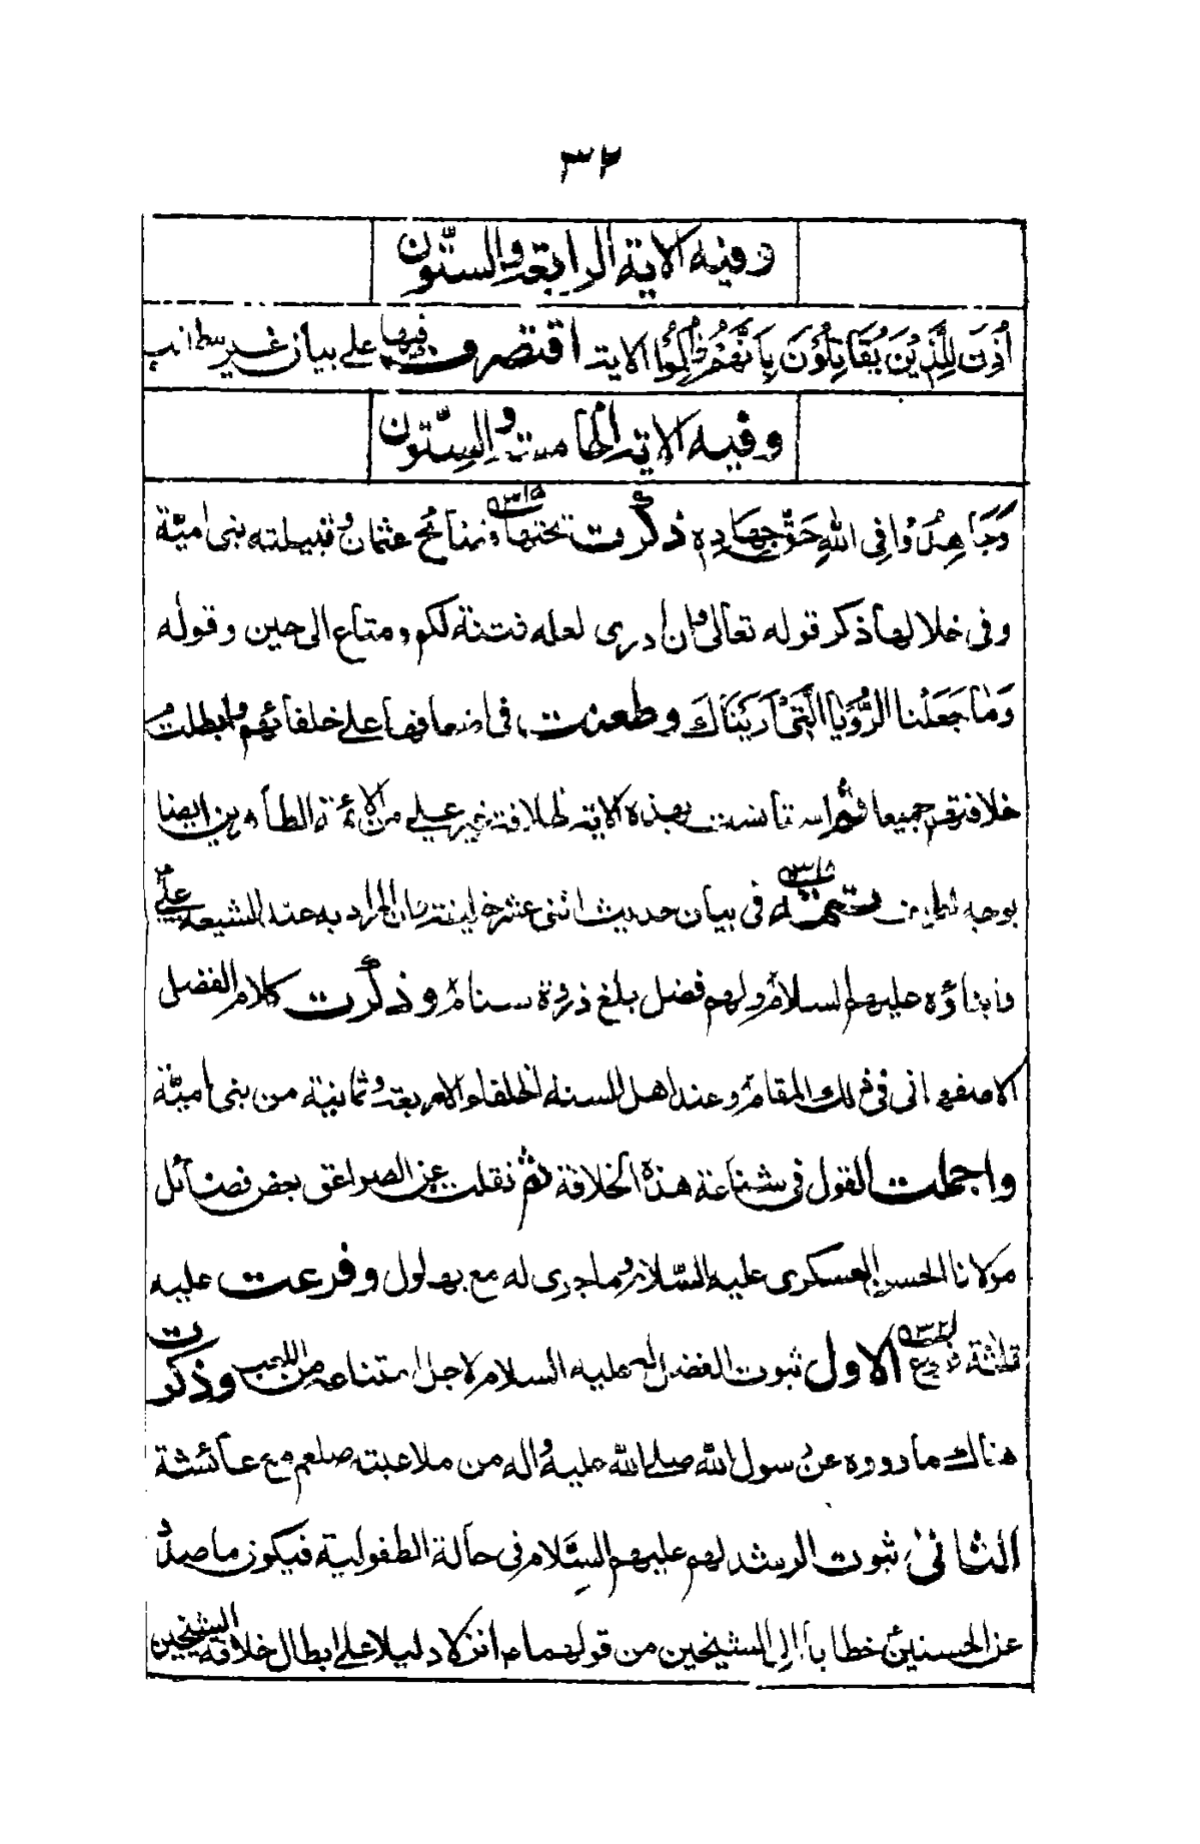 ٣٢
وفيه الاية الرابعة والستون
أُذِنَ لِلَّذِيْنَ يُقَاتِلُوْنَ بِاَنَّهُمْ ظُلِمُوْا الاية اقتصرت فيها على بيان غير
وفيه الاية الخامسة والستون
وَجَاهِدُوْا فِى اللهِ حَقَّ جِهَادِهٖ ذكرت تحتها ٥١٣ نتائج عثمان وقبيلته بنى امية
وفى خلالها ذكر قوله تعالى وان ادرى لعله فتنة لكم ومتاع الى حين وقوله
وَمَا جَعَلْنَا الرُّؤْيَا الَّتِىْ اَرَيْنَاكَ وطعنت فى اضعافها على خلفائهم وابطلت
خلافتهم جميعا ثم بهذه الاية لخلافة غير على من الائمة الطاهرين ايضا
بوجه تتمة فى بيان حديث اثنى عشر خليفة وان المراد به عند الشيعة على
وابناؤه عليهم السلام ولهم فضل بلغ ذروة سنام وذكرت كلام الفضل
الاصفهانى فى ذلك المقام وعند اهل السنة الخلفاء الاربعة وثمانية من بنى امية
واجملت القول فى شناعة هذه الخلافة ثم نقلت عن الصواعق بعض فضائل
مولانا الحسن العسكرى عليه السلام وما جرى له مع بهلول وفرعت عليه
ثلثة فروع ٥٣٢ الاول ثبوت الفضل له عليه السلام لاجل امتناعه من اللعب وذكرت
هناك ما رووه عن رسول الله صلى الله عليه واله من ملاعبته صلعم مع عائشة
الثانى ثبوت الرشد لهم عليهم السلام فى حالة الطفولية فيكون ما صدر
عن الحسنين خطابا الى الشيخين من قولهما انزلا دليلا على ابطال خلافة الشيخين